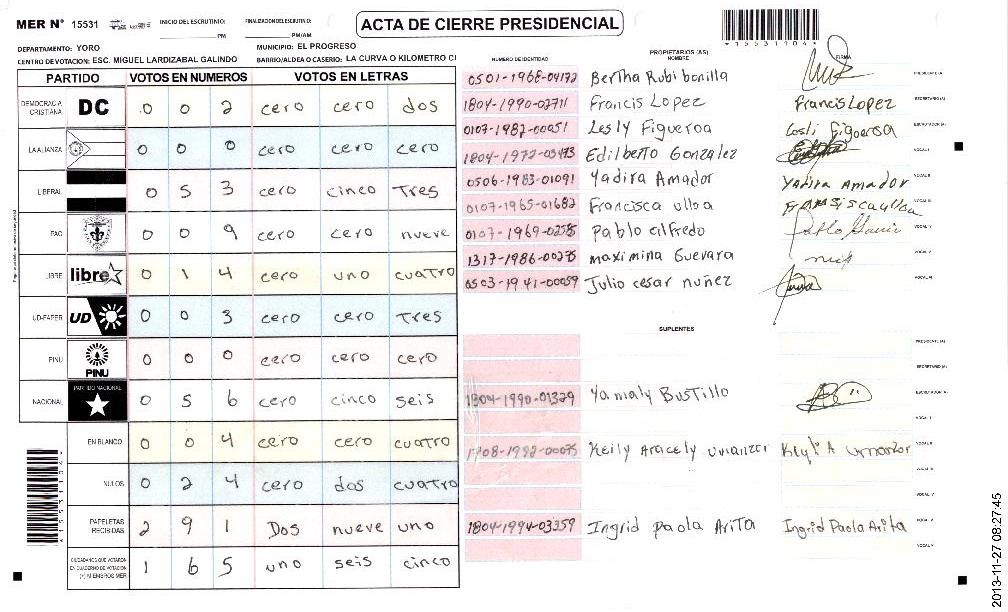 MER N° 15531
INICIO DEL ESCRUTINIO: PM
FINALIZACION DEL ESCRUTINIO: PM/AM
ACTA DE CIERRE PRESIDENCIAL
DEPARTAMENTO: YORO
MUNICIPIO: EL PROGRESO
CENTRO DE VOTACION: ESC. MIGUEL LARDIZABAL GALINDO
BARRIO/ALDEA O CASERIO: LA CURVA O KILOMETRO CI
PARTIDO VOTOS EN NUMEROS VOTOS EN LETRAS
DEMOCRACIA CRISTIANA DC 0 0 2 cero cero dos
LA ALIANZA 0 0 0 cero cero cero
LIBERAL 0 5 3 cero cinco Tres
PAC 0 0 9 cero cero nueve
LIBRE libre 0 1 4 cero uno cuatro
UD-FAPER UD 0 0 3 cero cero Tres
PINU PINU 0 0 0 cero cero cero
NACIONAL PARTIDO NACIONAL 0 5 6 cero cinco seis
EN BLANCO 0 0 4 cero cero cuatro
NULOS 0 2 4 cero dos cuatro
PAPELETAS RECIBIDAS 2 9 1 Dos nueve uno
CIUDADANOS QUE VOTARON EN CUADERNO DE VOTACION (+) MIEMBROS MER 1 6 5 uno seis cinco
NUMERO DE IDENTIDAD
PROPIETARIOS (AS)
NOMBRE
FIRMA
0501-1968-04172 Bertha Rubi bonilla PRESIDENTE/A
1804-1990-02711 Francis Lopez Francis Lopez SECRETARIO (A)
0107-1982-00051 Lesly Figueroa Losli Figueroa ESCRUTADOR (A)
1804-1972-03473 Edilberto Gonzalez VOCAL I
0506-1983-01091 Yadira Amador Yadira Amador VOCAL II
0107-1965-01682 Francisca ulloa VOCAL III
0107-1969-02535 Pablo alfredo VOCAL IV
1317-1986-00275 maximina Guevara VOCAL V
0503-1941-00059 Julio cesar nuñez VOCAL VI
SUPLENTES
PRESIDENTE (A)
SECRETARIO (A)
1804-1990-01329 Yamaly Bustillo ESCRUTADOR (A)
VOCAL I
Keily Aracely umanzor VOCAL II
VOCAL III
VOCAL IV
1804-1994-03359 Ingrid paola Arita Ingrid Paola Arita VOCAL V
VOCAL VI
2013-11-27 08:27:45